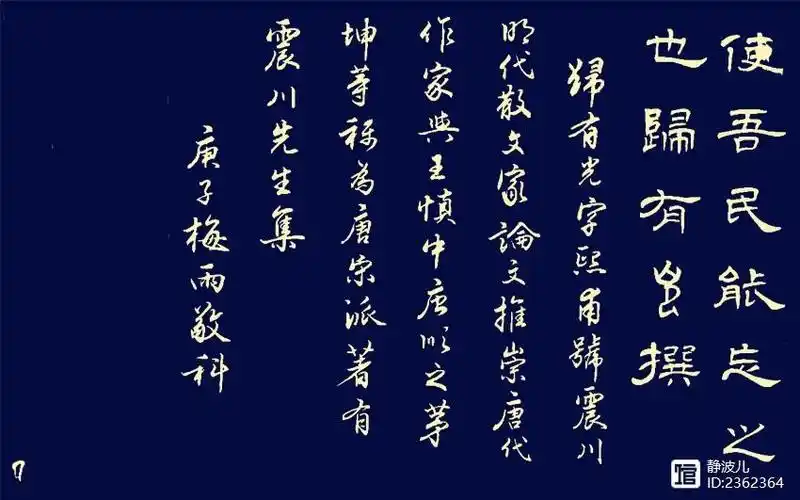 使吾民能忘之
也歸有光撰
歸有光字熙甫號震川
明代散文家論文推崇唐代
作家與王慎中唐順之茅
坤等稱為唐宋派著有
震川先生集
庚子梅雨敬科
静波儿
ID:2362364